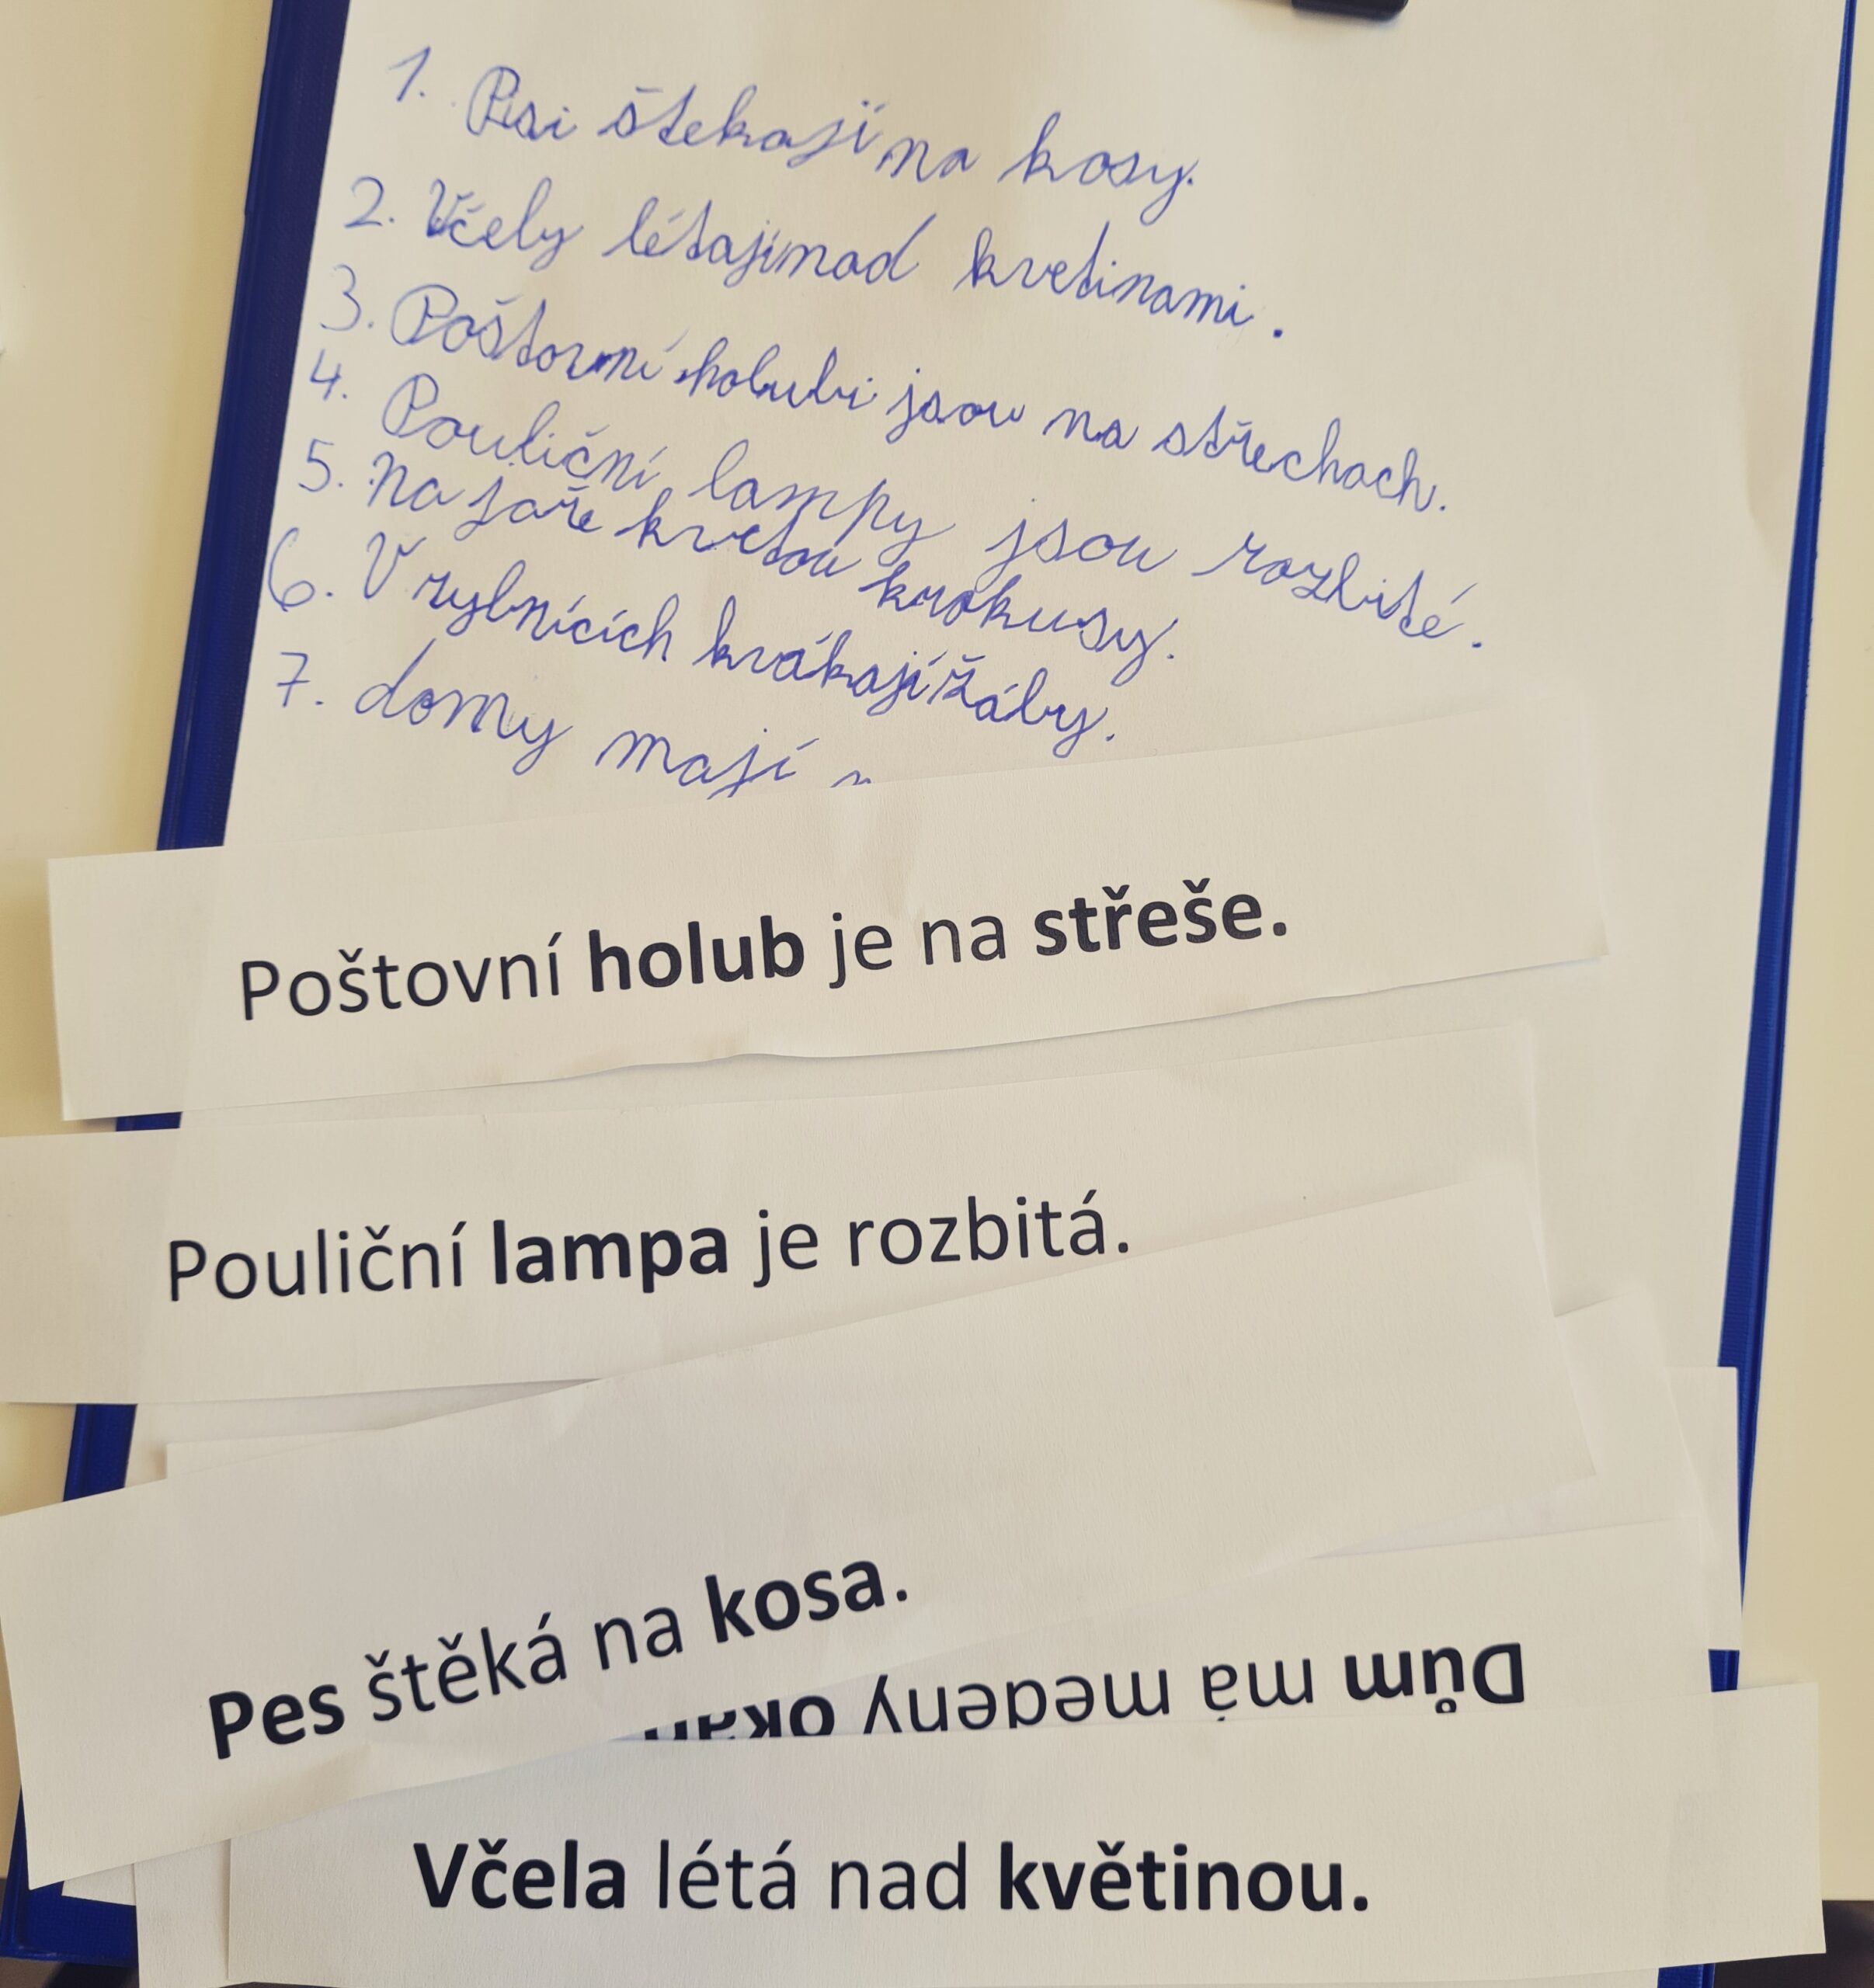 1. Psi štekají na kosy.
2. Včely létají nad kvetinami.
3. Poštovní holubi jsou na střechach.
4. Pouliční lampy jsou rozbité.
5. Na jaře kvetou krokusy.
6. V rybnících kvákají žáby.
7. domy mají
Poštovní holub je na střeše.
Pouliční lampa je rozbitá.
Pes štěká na kosa.
Dům má měděný
Včela létá nad květinou.